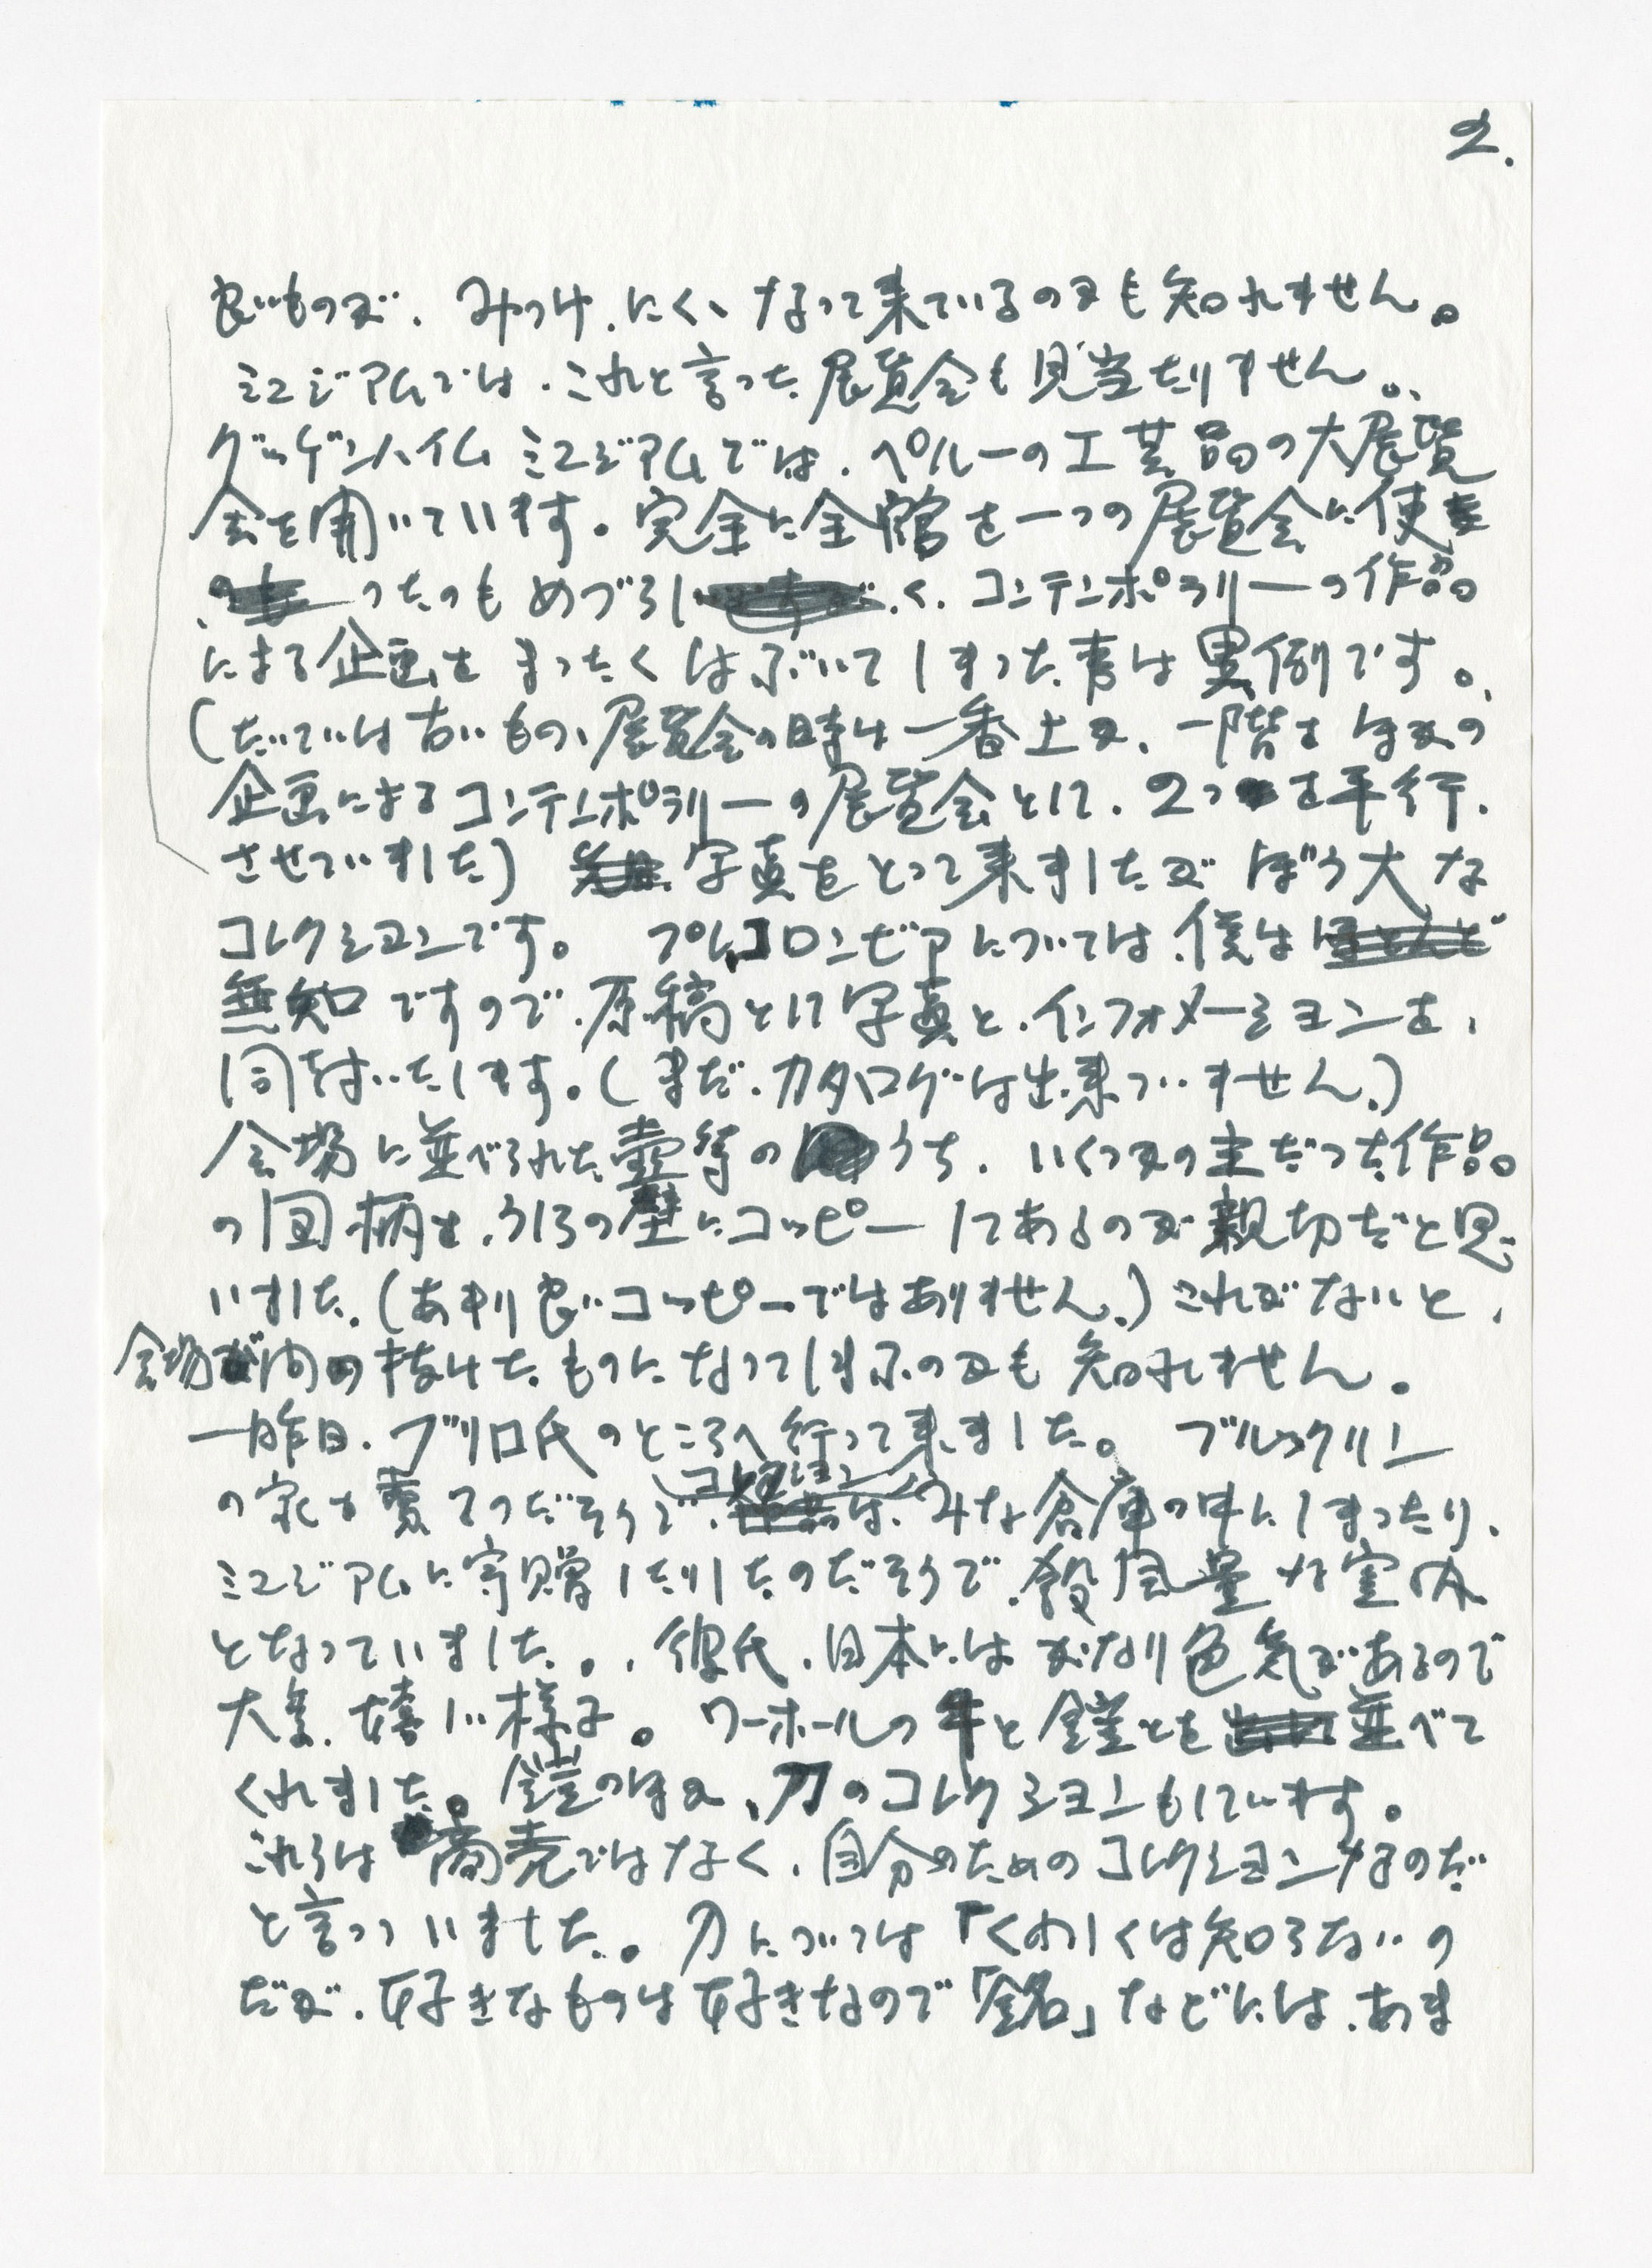 2.
良いものが、みつけ、にくくなって来ているのかも知れません。
ミュジアムでは、これと言った展覧会も見当たりません。
グッゲンハイムミュジアムでは、ペルーの工芸品の大展覧
会を開いています。完全に全館を一つの展覧会に使
ったのもめづらしく、コンテンポラリーの作品
による企画をまったくはぶいてしまった事は異例です。
(たいていは古いもの、展覧会の時は一番上か、一階をほかの
企画によるコンテンポラリーの展覧会として、2つを平行
させていました) 写真をとって来ましたが ぼう大な
コレクションです。 プレコロンビアについては、僕は
無知ですので、原稿として写真と、インフォメーションを、
同封いたします。(まだ、カタログは出来ていません。)
会場に並べられた壺等のうち、いくつかの主だった作品
の図柄を、うしろの壁にコッピーしてあるのが親切だと思
いました。(あまり良いコッピーではありません。) これがないと、
会場が間の抜けたものになってしまふのかも知れません。
一昨日、ブリロ氏のところへ行って来ました。 ブルックリン
の家は売ってつだそうで、コレクションは、みな倉庫の中にしまったり、
ミュジアムに寄贈したりしたのだそうで、殺風景な室内
となっていました。彼氏、日本にはかなり色気があるので
大変嬉しい様子。 ワーホールの牛と鎧とを並べて
くれました。鎧のほか、刀のコレクションもしています。
これらは商売ではなく、自分のためのコレクションなのだ
と言っていました。 刀については「くわしくは知らないの
だが、好きなものは好きなので「銘」などには、あま